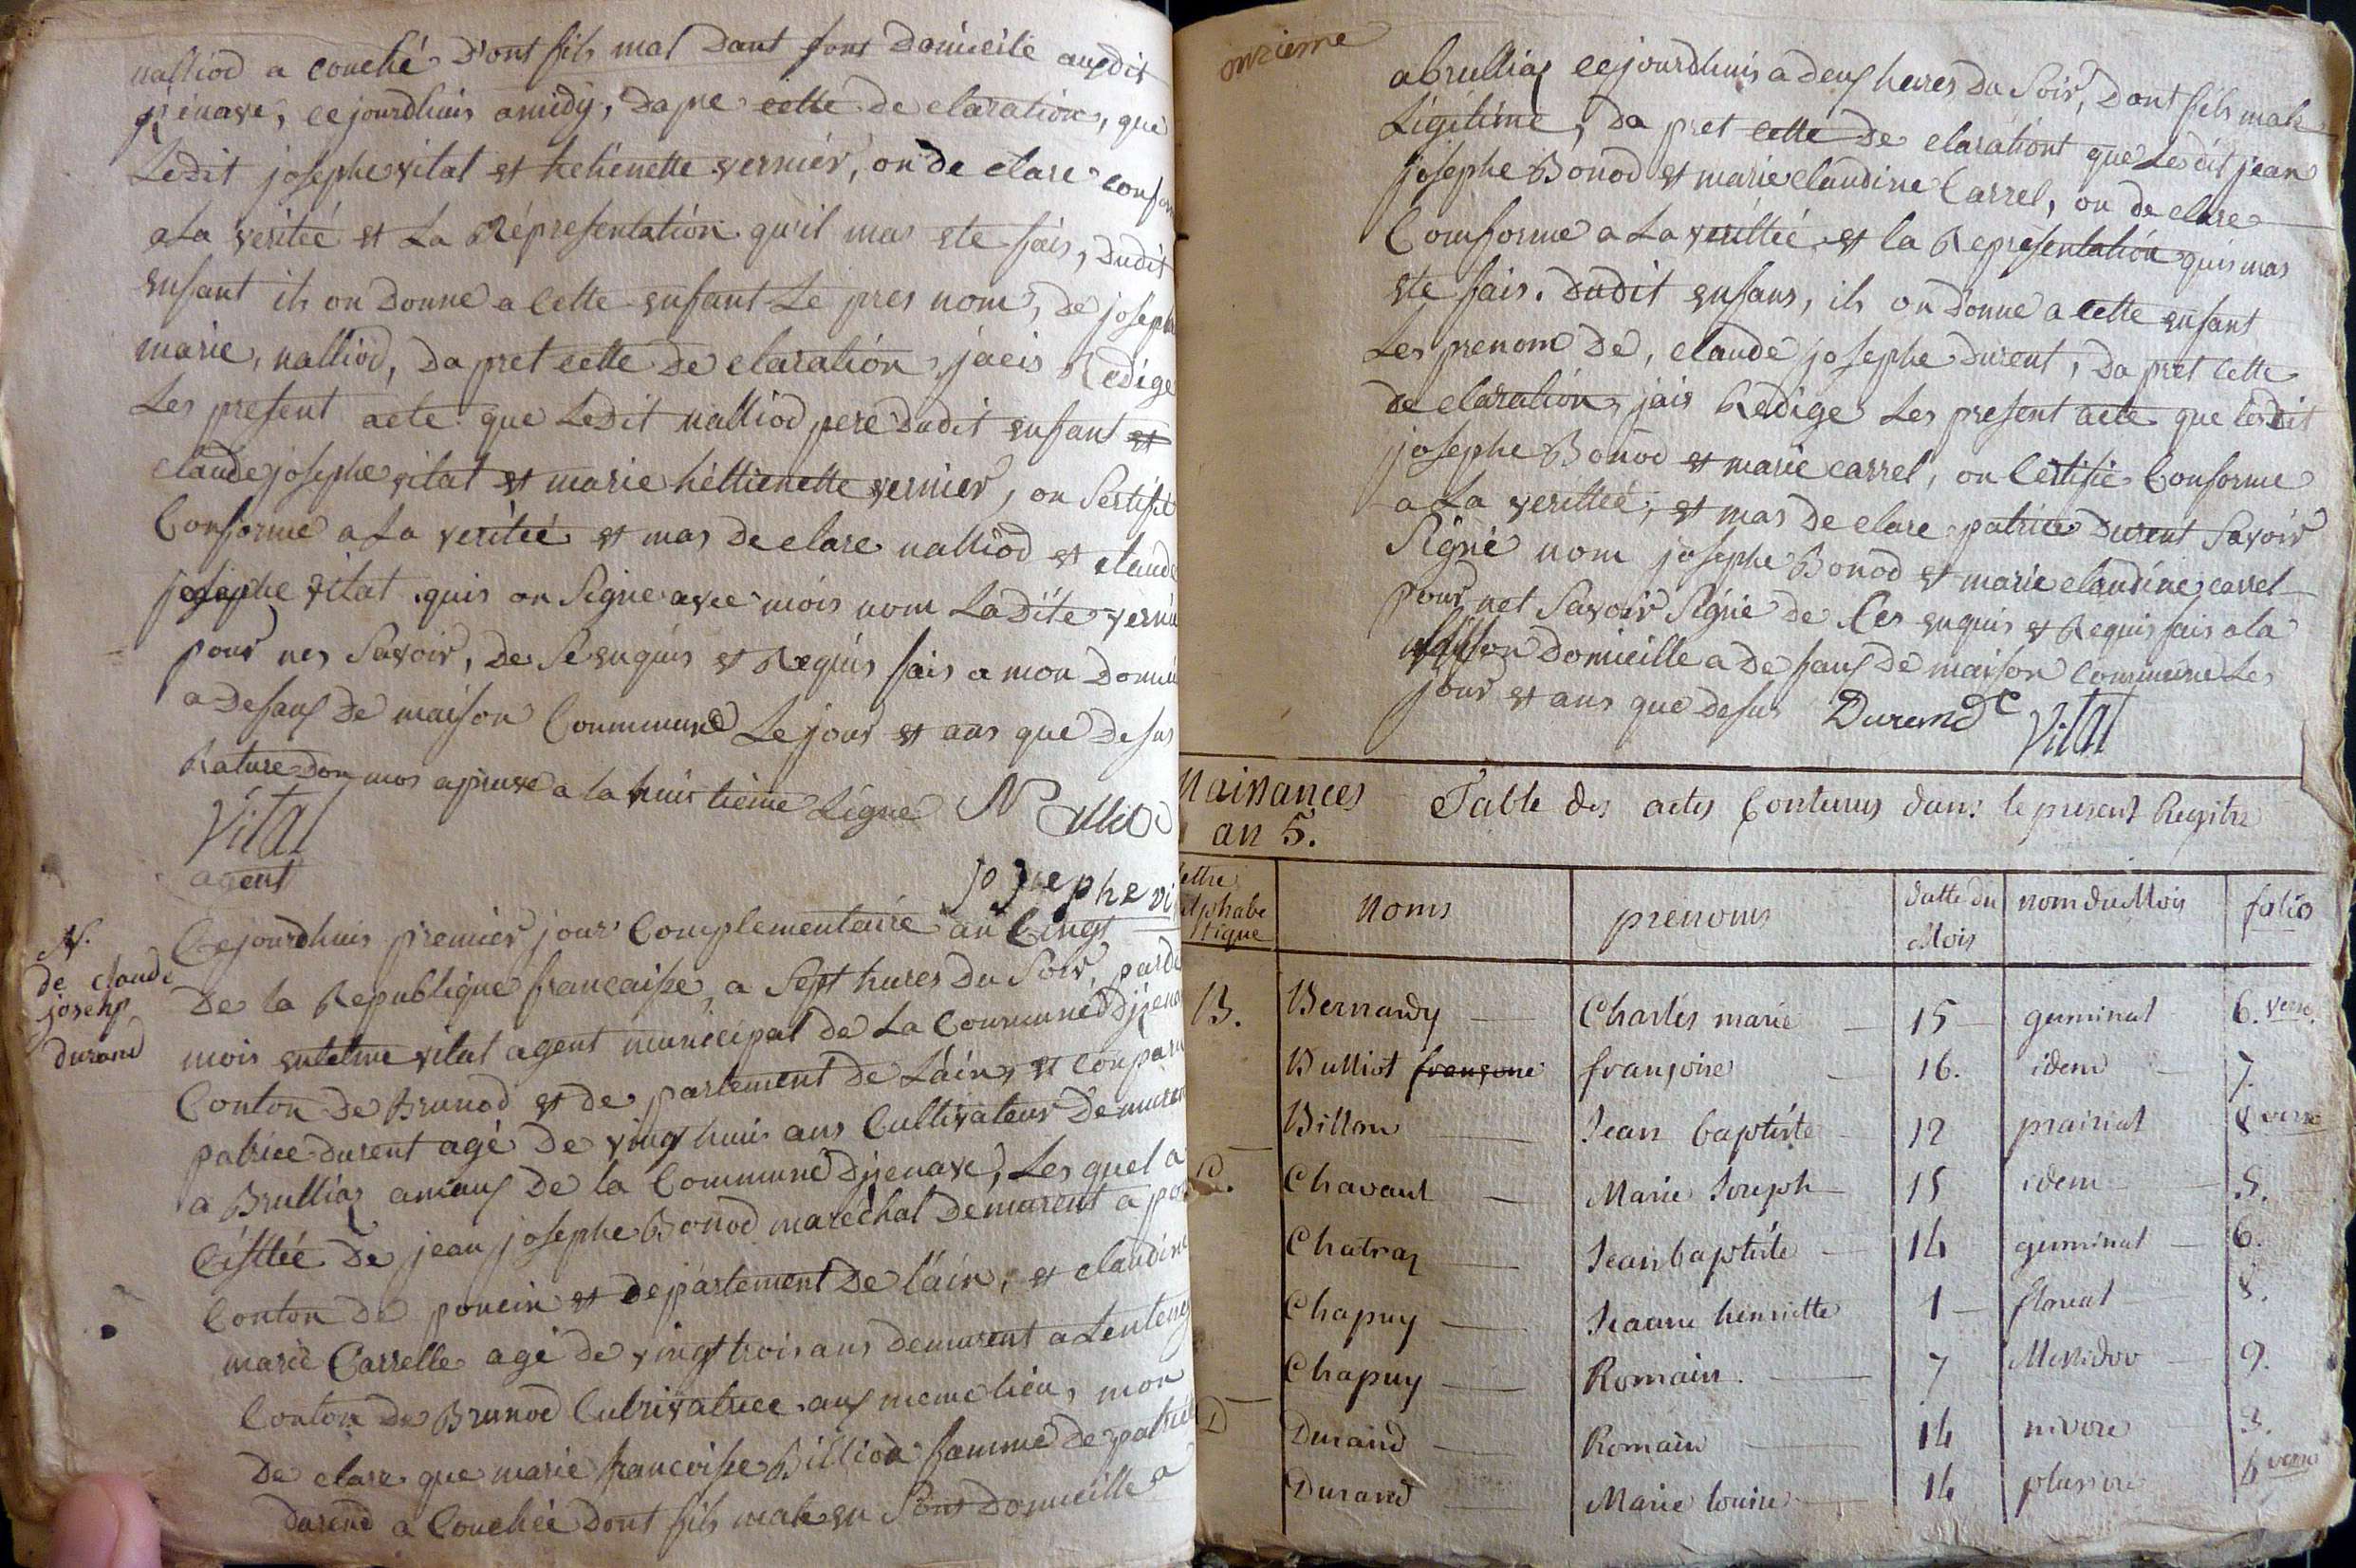 nalliod a couché d'ont fils mal dant sont domicile ausdit
jzénave, cejourdhuis amidy, dapre cette de claration, que
Ledit josephe vitat et hetienette vernier, on de clare confor
a La veritéé et La Répresentation qu'il mas ete fais, dudit
enfant ils on donne a cette enfant Le pres nom, de joseph
marie, nalliod, dapret cette de claration jaeis Redige
Les present acte que Ledit nalliod pere dudit enfant et
claude josephe vitat et marie héttienette vernier, on Sertifié
Conforme a La veritéé et mas de clare nalliod et claude
josephe vitat quis on Signe avec mois nom Ladite vernie
pour nes Savoir, de Se enquis et Requis fais a mon domici
a defaus de maison Commune Le jour et ans que desus
Rature don mos apruve a la huis tieme Ligne N allio
Vital
agent
Josephe vi
N.
de claude
joseph
durand
Cejourdhuis premier jour Complementaire an Cinqt
de la Republique francaisse, a Sept hures du Soir, parde
mois entelme vital agent municipal de La Commune djzena
Conton de Brunod et de partement de L'ain, et conparu
patrice durent agé de vingt huis ans Cultivateur demuren
a Brullias ameaus de la Commune djzenave, Les quel a
Cistéé de jean josephe Bonod maréchal demurent a pon
Conton de poncin et departement de l'ain, et claudine
marie Carrelle agé de vingt trois ans demurent a Lenteney
Conton de Brunod Cultrivatrice aus meme lieu, mon
de clare que marie francoisse Billion famme de patrice
durend a Couchéé dont fils male en Sont domicille a
onzieme
a brullias cejourdhuis a deus heures du Soir, dont fils male
Légitime, da pret cette de clarationt que Lesdit jean
josephe Bonod et marie claudine Carrel, on de clare
Comforme a La verittéé et la Representation quis mas
ete fais. dudit enfans, ils on donne a cette enfant
Les prenom de, claude josephe durent, da pret cette
de claration jais Redige Les present acte que Lesdit
josephe Bonod et marie carrel, on Certifié Conforme
a La verittéé, et mas de clare patrice durent Savoir
Signé nom josephe Bonod et marie claudine carrel
pour net Savoir Signé de Ces enquis et Requis fais a la
maison domicille a de faus de maison Commune Les
jour et ans que desus Durend Vital
Naissances Table des actes Contenus dans le present Registre
an 5.
lettre alphabetique noms prenoms datte du Mois nom du Mois folio
B. Bernardy Charles marie 15 germinal 6. verso.
Bulliot françoise françoise 16. idem 7.
Billon Jean baptiste 12 prairial 8 verso
C. Chavant Marie Joseph 15 idem 9.
Chatraz Jean baptiste 14 germinal 6.
Chapuy Jeanne henriette 1 floreal 8.
Chapuy Romain. 7 Messidor 9.
D Durand Romain 14 nivose 3.
Durand Marie louise 14 pluviose 6 verso